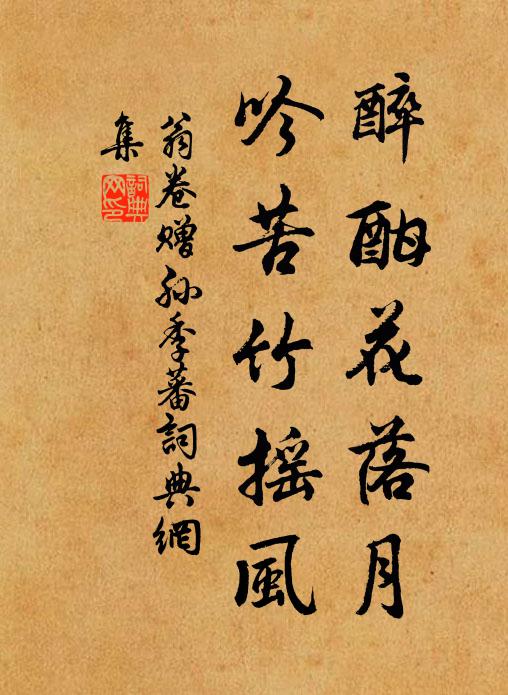 醉酣花落月
吟苦竹摇風
翁卷贈孙季蕃詞典網
集
詞典網印